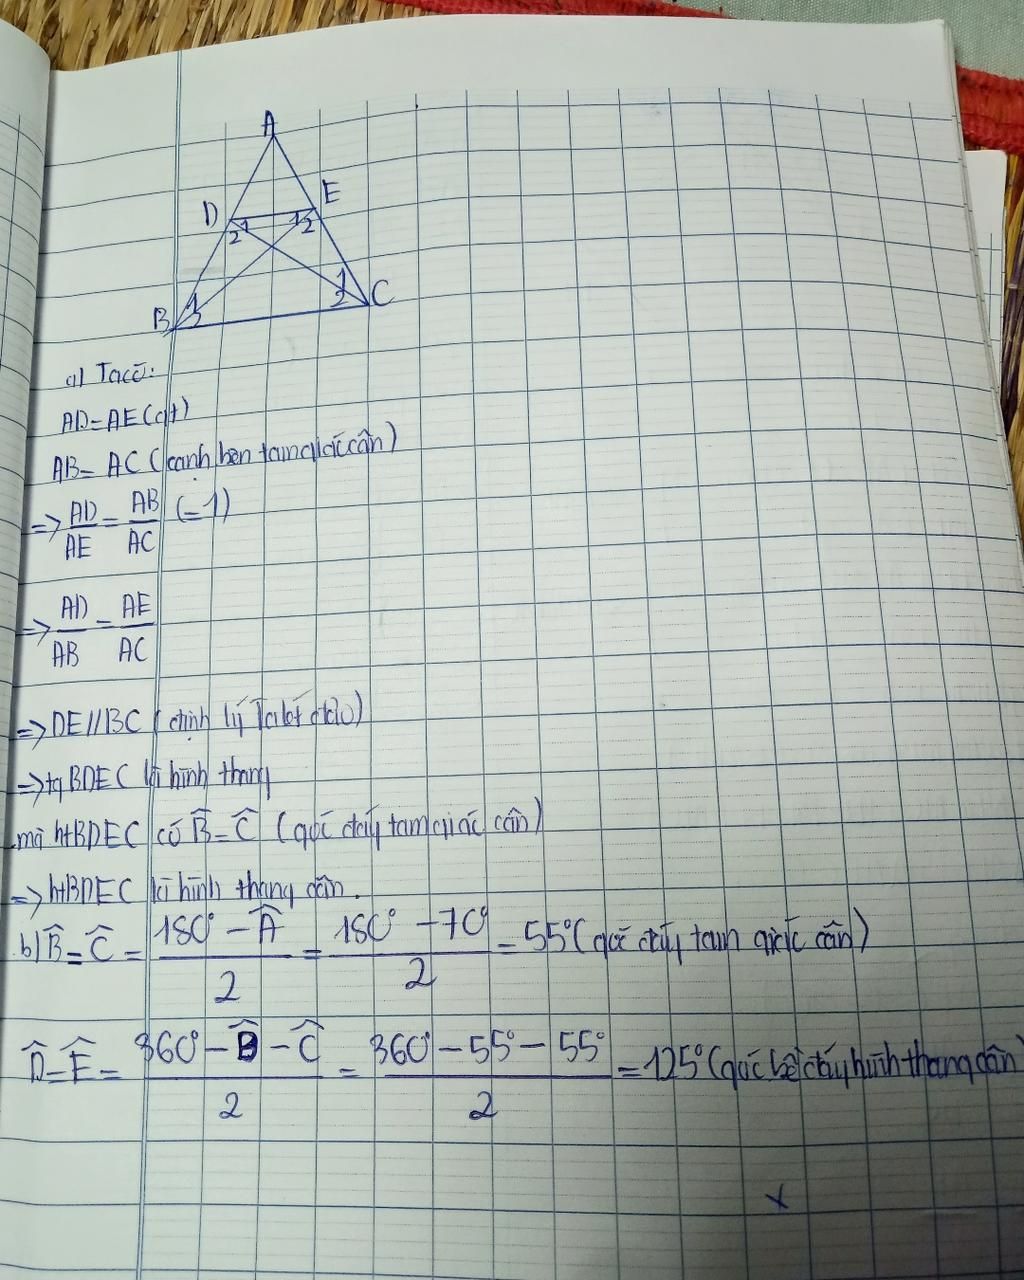 A
D E
2 1 1 2
1 2
B 1 2 C
a) Ta có:
AD=AE(gt)
AB= AC (cạnh bên tam giác cân)
=> AD/AE = AB/AC (=1)
=> AD/AB = AE/AC
=> DE//BC (định lý Talét đảo)
=> tg BDEC là hình thang
mà htBDEC có B̂=Ĉ (góc đáy tam giác cân)
=> htBDEC là hình thang cân.
b) B̂=Ĉ = (180° - Â)/2 = (180° - 70°)/2 = 55° (góc đáy tam giác cân)
D̂=Ê= (360° - B̂ - Ĉ)/2 = (360° - 55° - 55°)/2 = 125° (góc kề đáy hình thang cân)
x